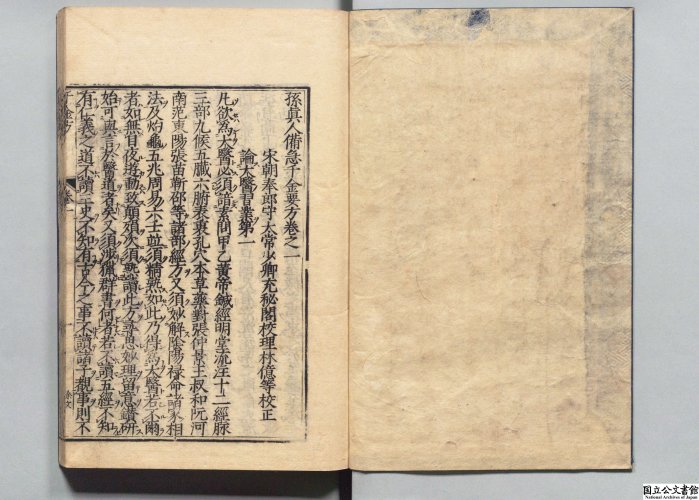 孫眞人備急千金要方卷之一
宋朝奉郎守太常少卿充秘閣校理林億等校正
論大醫習業第一
凡欲爲大醫必須諳素問甲乙黃帝鍼經明堂流注十二經脉
三部九候五臟六腑表裏孔穴本草藥對張仲景王叔和阮河
南范東陽張苗靳邵等諸部經方又須妙解陰陽禄命諸家相
法及灼龜五兆周易六壬並須精熟如此乃得爲大醫若不爾
者如無目夜遊動致顛殞次須熟讀此方尋思妙理留意鑽研
始可與言於醫道者矣又須涉獵群書何者若不讀五經不知
有仁義之道不讀三史不知有古今之事不讀諸子覩事則不
千金方
卷一
国立公文書館
National Archives of Japan